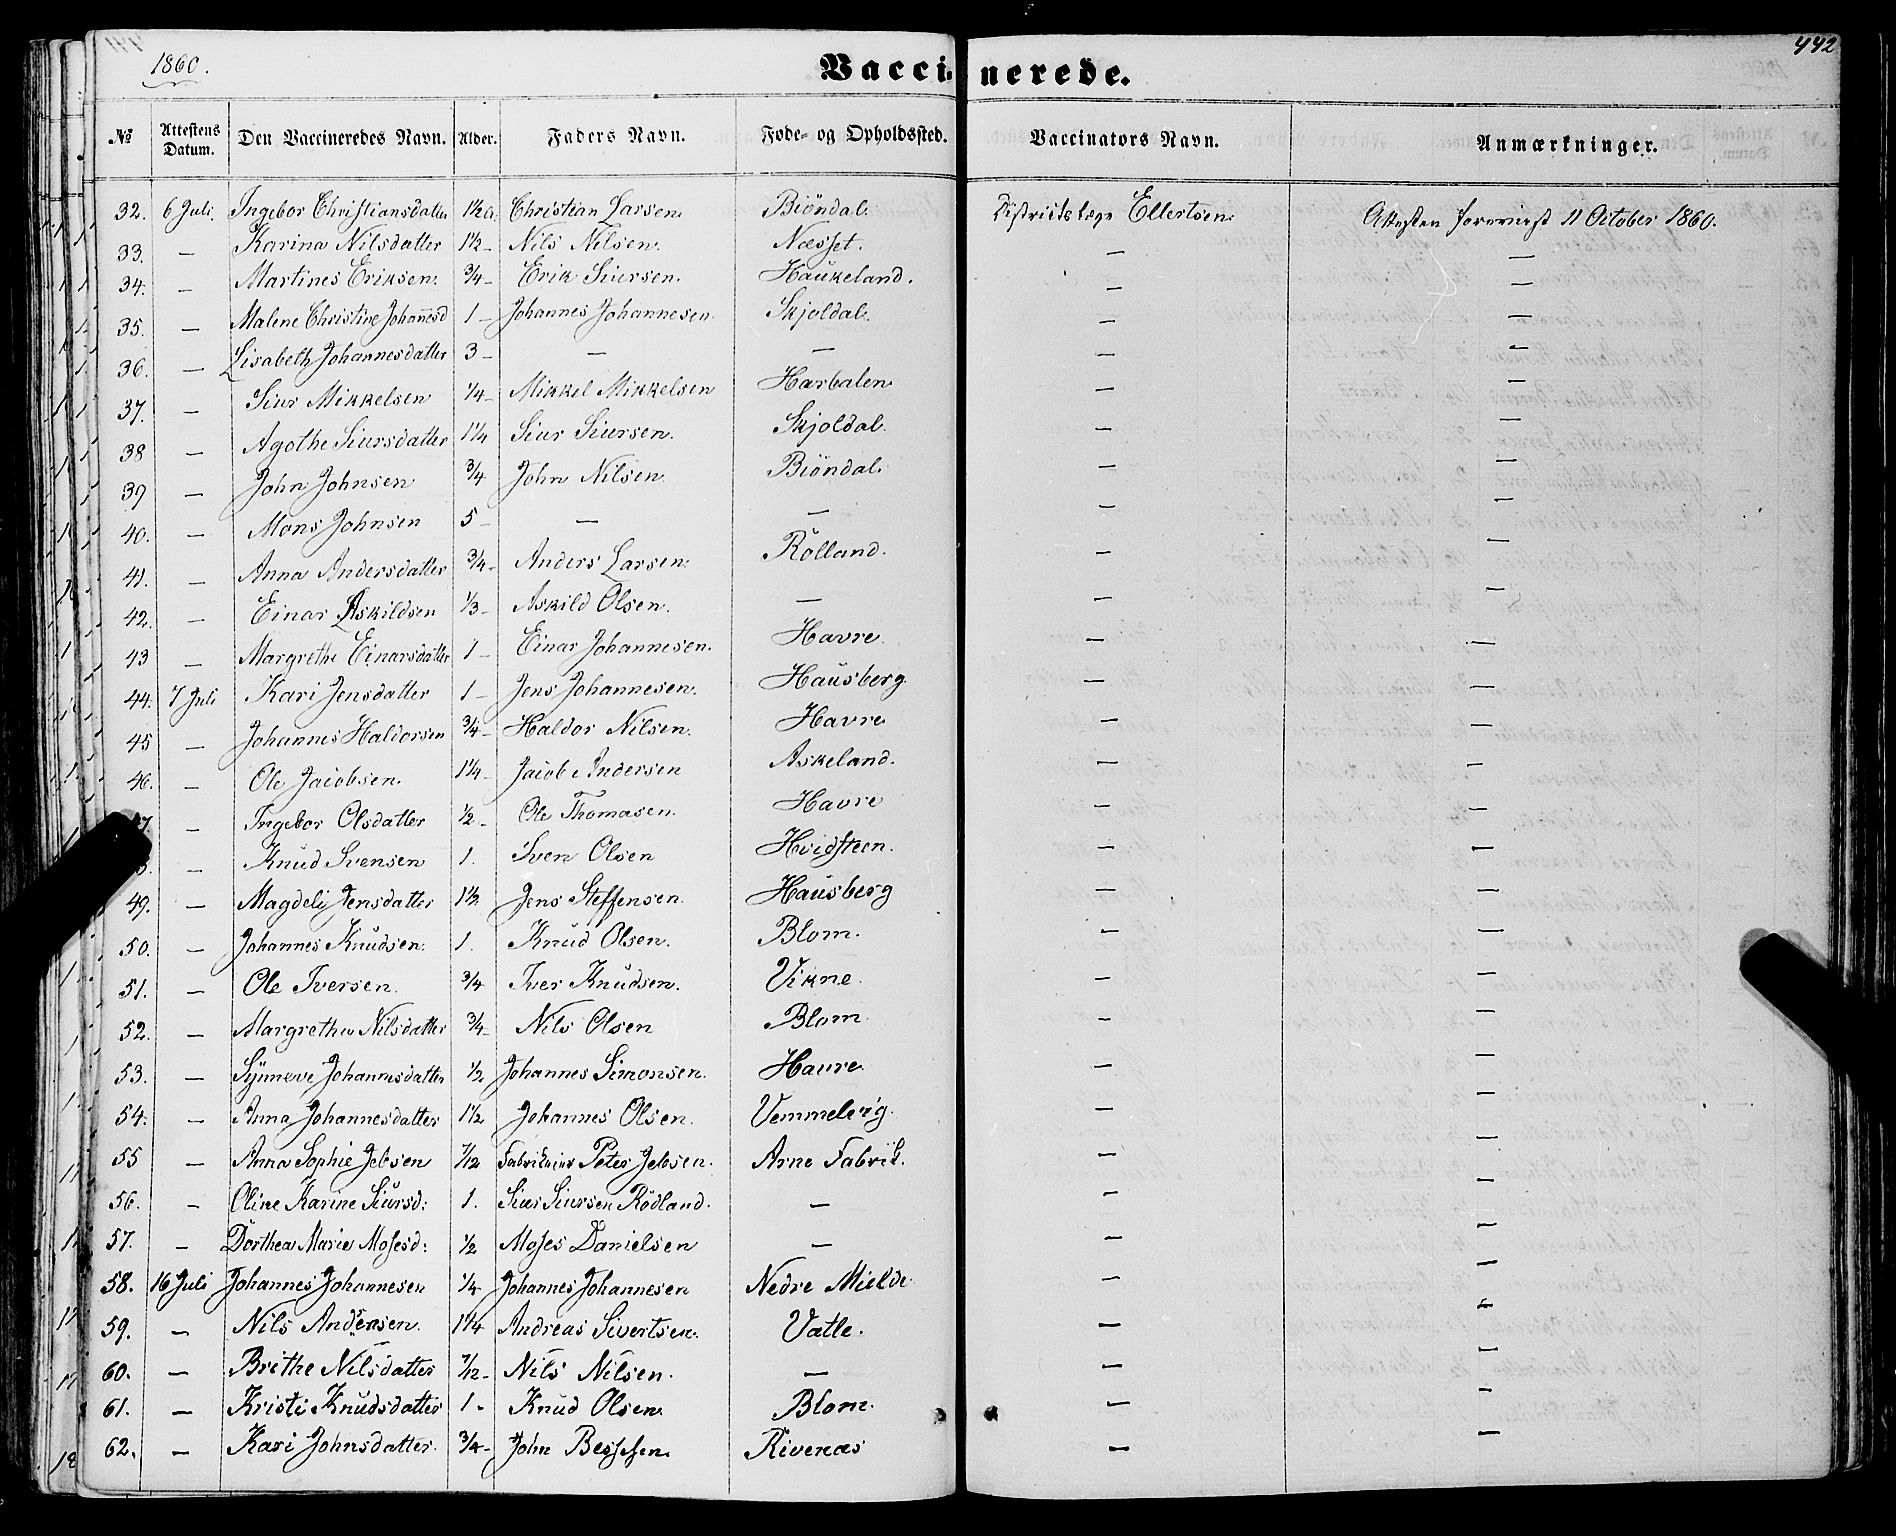 1860.
442
Vaccinerede.
№ Attestens Datum. Den Vaccineredes Navn. Alder. Faders Navn. Føde- og Opholdssted. Vaccinators Navn. Anmærkninger.
32. 6 Juli Ingebor Christiansdatter 1½ Christian Larsen. Biöndal. Districtslæge Ellertsen. Attesten foreviist 11 October 1860.
33. — Karina Nilsdatter 1½ - Nils Nilsen. Næsset. — —
34. — Martines Eriksen. ¾ - Erik Siursen. Haukeland. — —
35. — Malene Christine Johannesd 1 - Johannes Johannesen. Skjoldal. — —
36. — Lisabeth Johannesdatter 3 - — — — —
37. — Siur Mikkelsen ¼ - Mikkel Mikkelsen Harbalen — —
38 — Agothe Siursdatter 1¼ Siur Siursen. Skjoldal. — —
39 — John Johnsen ¾ John Nilsen Biöndal. — —
40. — Mons Johnsen 5 - — — — —
41. — Anna Andersdatter ¾ - Anders Larsen. Rölland. — —
42. — Einar Askildsen ⅓ - Askild Olsen. — — —
43 — Margrethe Einarsdatter 1 - Einar Johannesen. Havre. — —
44. 7 Juli Kari Jensdatter 1 - Jens Johannesen. Hausberg — —
45 — Johannes Haldorsen ¾ - Haldor Nilsen. Havre — —
46. — Ole Jacobsen. 1¼ - Jacob Andersen Askeland. — —
7. — Ingebor Olsdatter ½ - Ole Thomasen. Havre — —
— Knud Svensen 1. Sven Olsen Hvidsteen. — —
49. — Magdeli Jensdatter 1½ Jens Steffensen. Hausberg — —
50. — Johannes Knudsen. 1. Knud Olsen. Blom. — —
51. — Ole Iversen. ¾ Iver Knudsen. Vikne. — —
52. — Margrethe Nilsdatter ¾ - Nils Olsen Blom — —
53. — Synneve Johannesdatter ½ Johannes Simonsen. Havre. — —
54. — Anna Johannesdatter 1½ Johannes Olsen. — —
55 — Anna Sophie Jebsen 7/12 Peter Jebsen. Arne Fabrik. — —
56. — Oline Karine Siursd: 1. Siur Siursen Rödland. — — —
57. — Dorthea Marie Mosesd: ½ Moses Danielsen — — —
58. 16 Juli Johannes Johannesen ¼ Johannes Johannesen Nedre Mielde — —
59. — Nils Andersen. 1¼ Andreas Sivertsen. Vatle. — —
60. — Brithe Nilsdatter 7/12 - Nils Nilsen. — — —
61. — Kristi Knudsdatter 1 - Knud Olsen. Blom. — —
62. — Kari Johnsdatter. ¾ - John Rivenæs — —